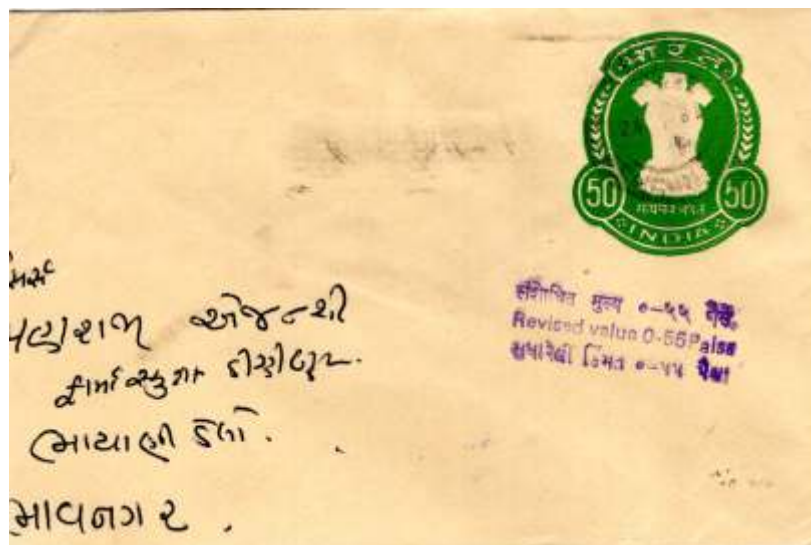 भारत
50 50
सत्यमेव जयते
INDIA
संशोधित मूल्य ०-५५ पैसे
Revised value 0-55 Paise
સુધારેલી કિંમત ૦-૫૫ પૈસા
મેસર્સ
એજન્સી
ભાયાણી ડેલો.
ભાવનગર.